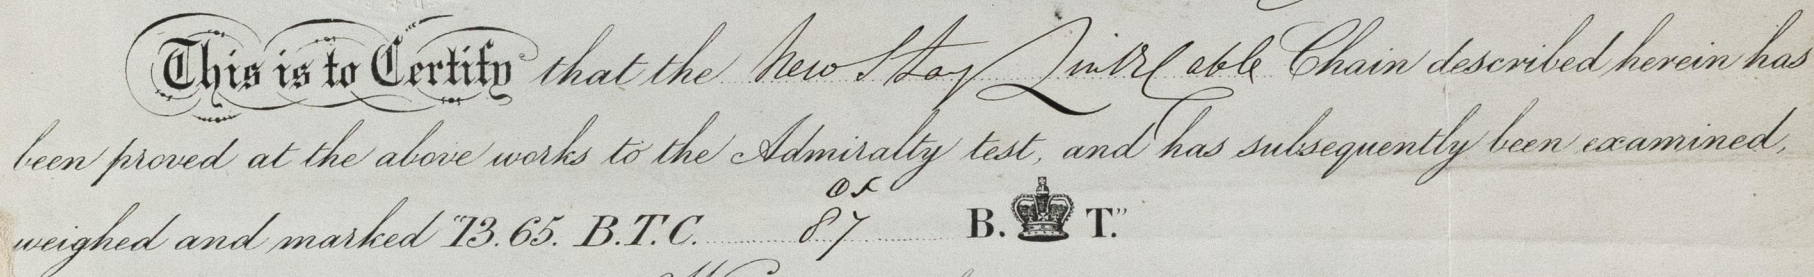 This is to Certify that the New Stay Link Cable Chain described herein has
been proved at the above works to the Admiralty test, and has subsequently been examined,
weighed and marked "73.65. B.T.C. 87 B. T."